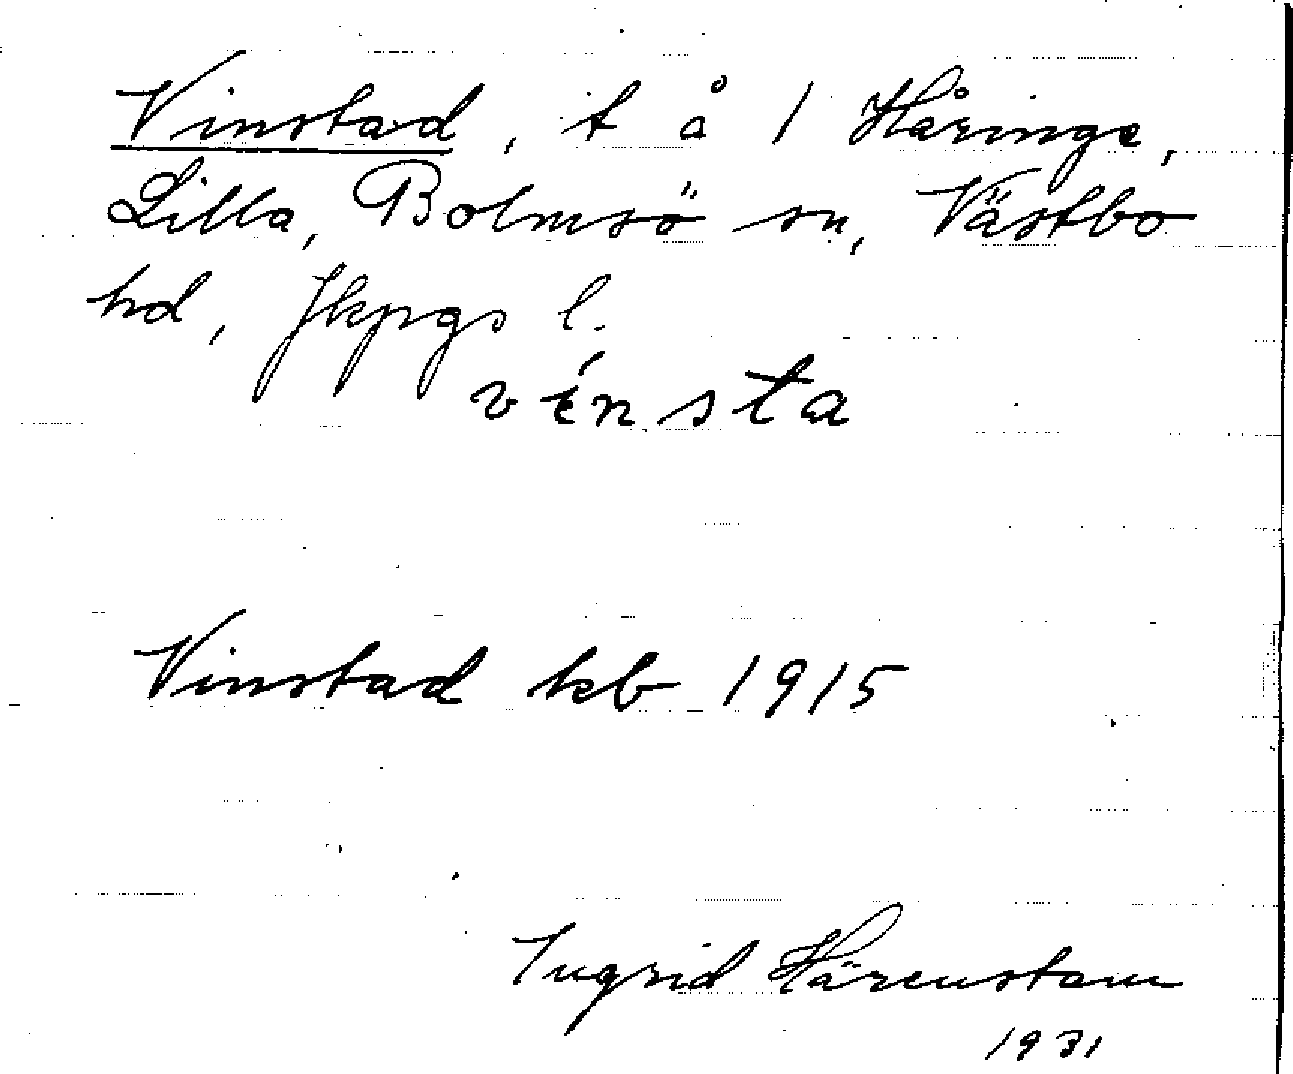 Vinstad, t å 1 Håringe,
Lilla, Bolmsö sn, Västbo
hd, Jkpgs l.
vénsta
Vinstad kb 1915
Ingrid Härenstam
1931